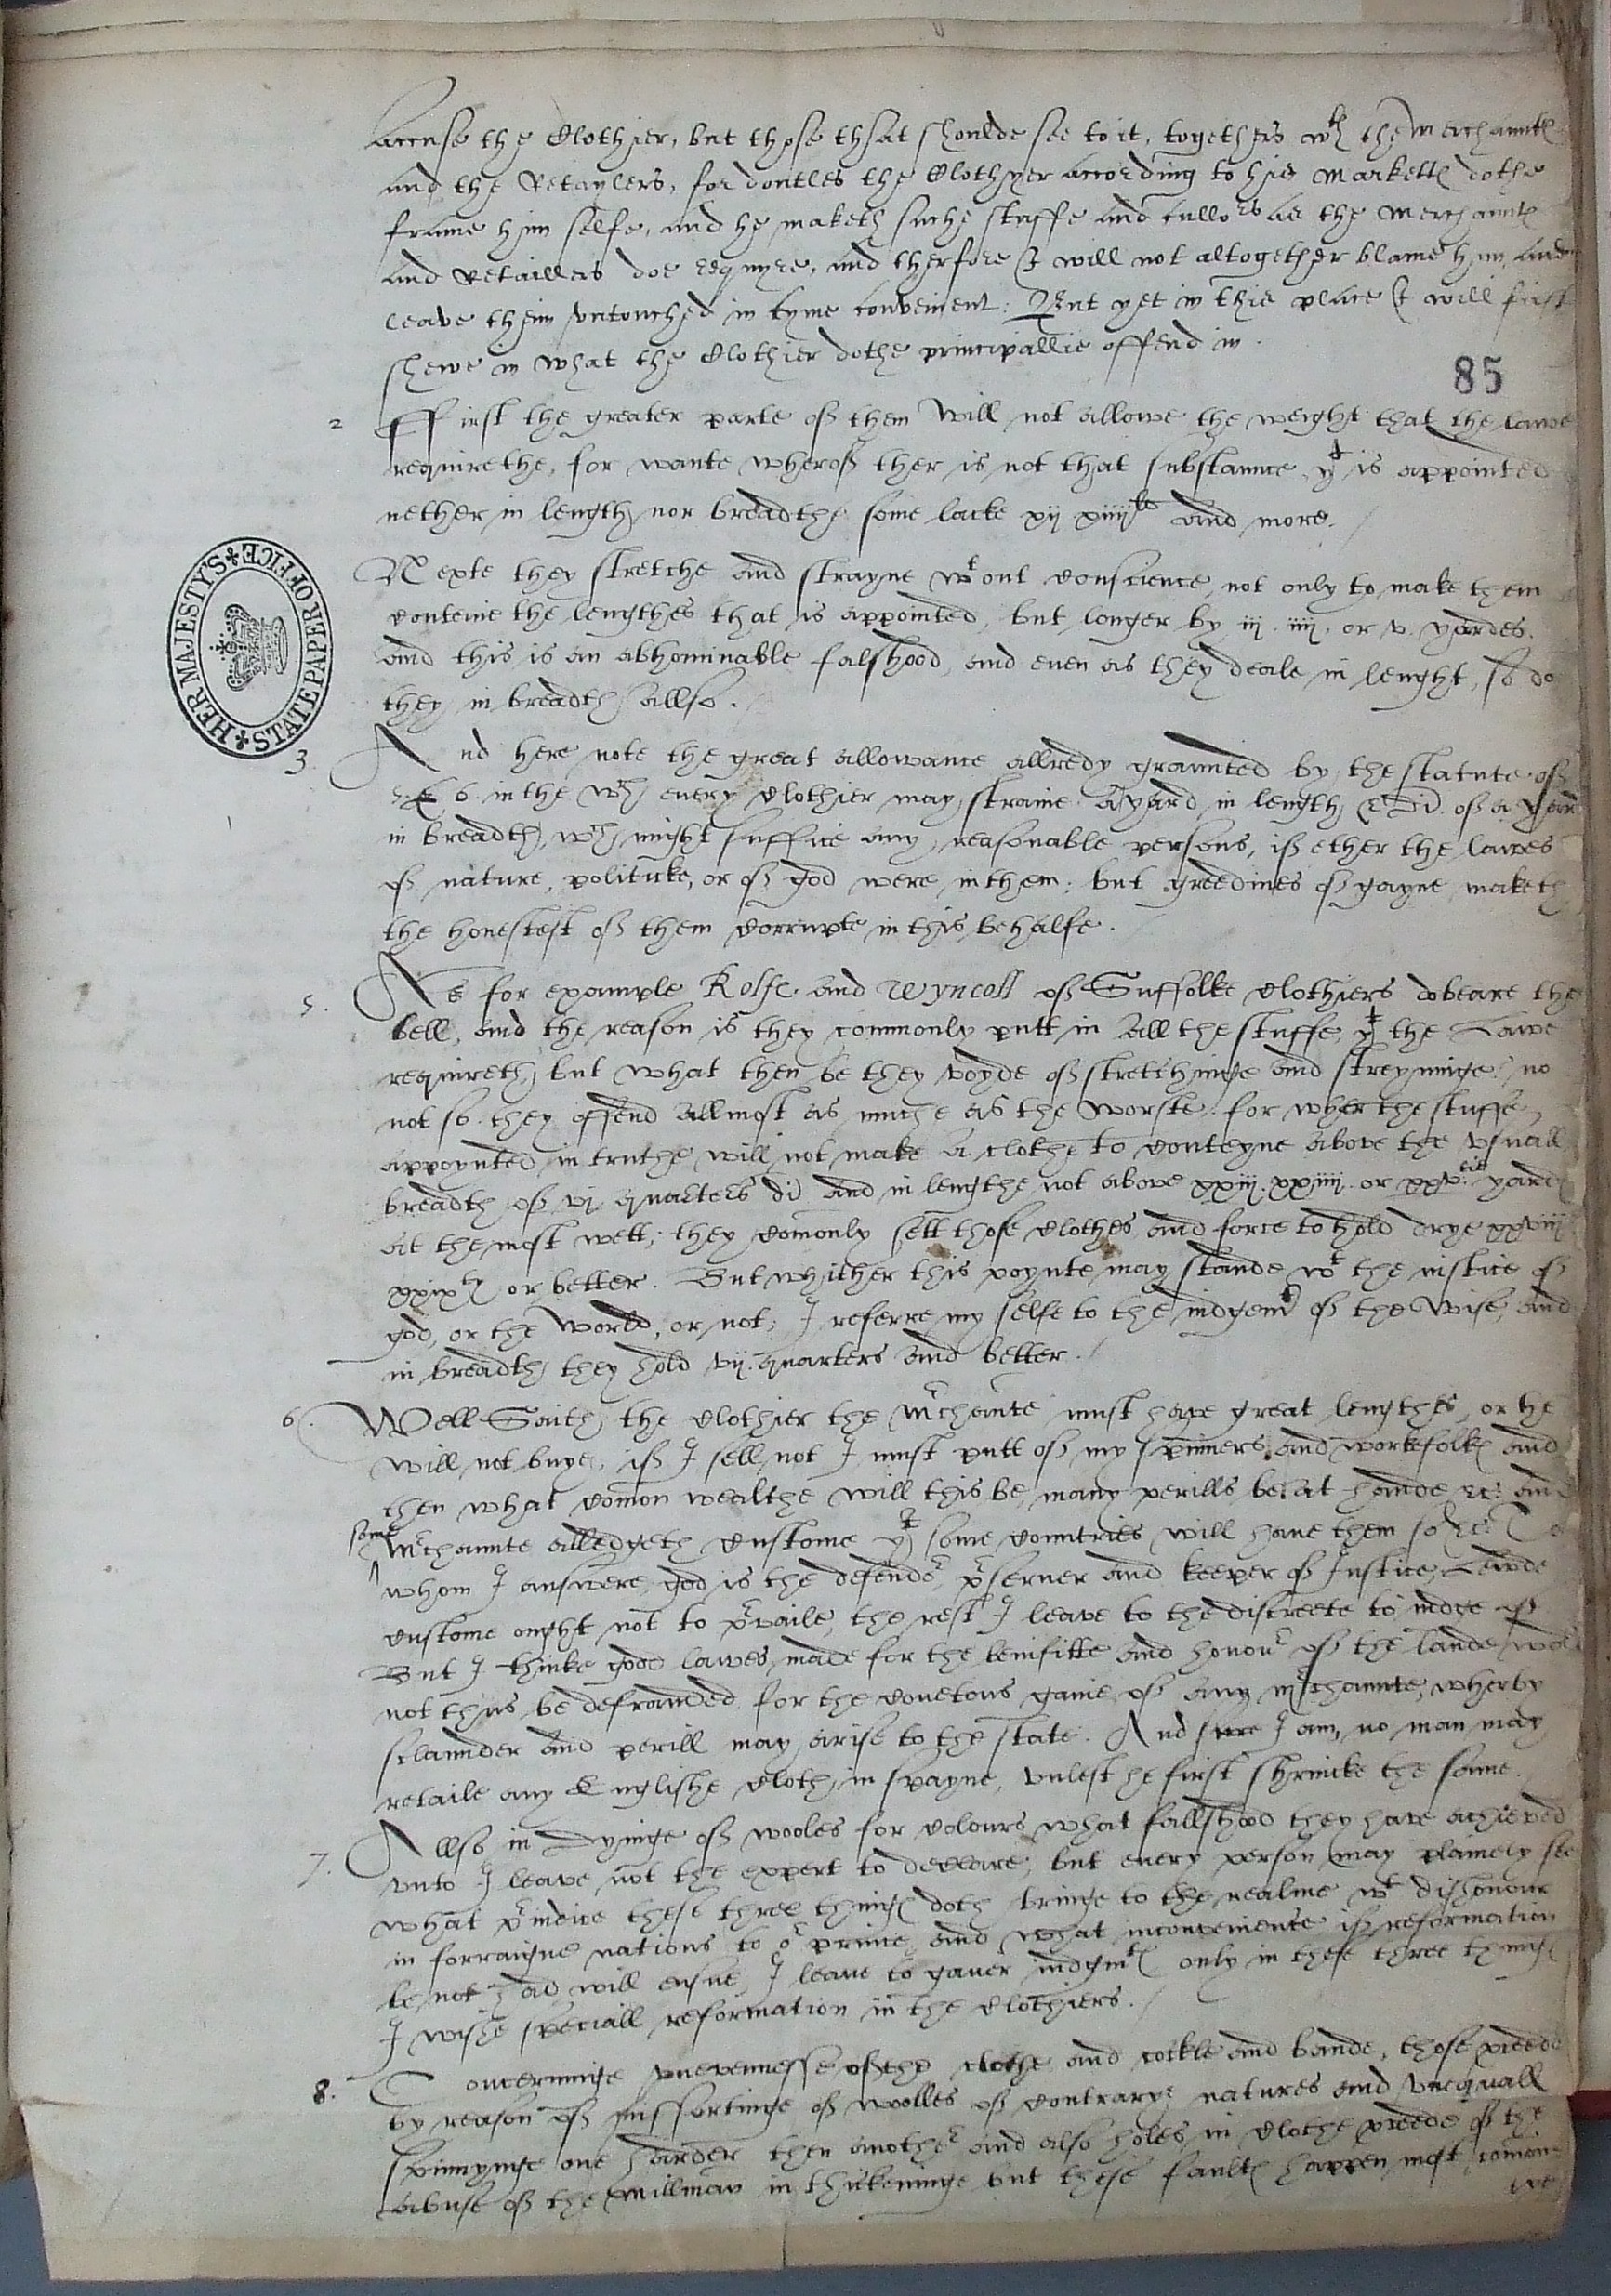 accuse the Clothier, but those that shoulde see to it, togethers wth the Merchaunts
and the Retaylers, for doutles the Clothyer according to his Marketts dothe
frame him selfe, and he maketh suche stuffe and cullors as the Merchaunts
and Retaillers doe requyre, and therfore I will not altogether blame him, and
leave them untouched in tyme convenient. But yet in this place I will first
shewe in what the Clothier dothe principallie offend in.
85
2 First the greater parte of them will not allowe the weight that the lawe
requirethe, for wante wherof ther is not that substaunce yt is appointed
nether in length nor breadthe some lacke xij xiiijlb and more.
Nexte they stretche and strayne wtout conscience, not only to make them
conteine the lengthes that is appointed, but longer by iij. iiij. or v. yardes.
and this is an abhominable falshood, and even as they deale in lenght, so do
they in breadth allso.
HER MAJESTY'S STATE PAPER OFFICE
3. And here note the great allowance allredy graunted by the statute of
E 6. in the wch every clothier may straine a yard in length & di. of a yard
in breadth, wch might suffice any reasonable persons, if ether the lawes
of nature, politicke, or of god were in them: but greedines of gayne maketh
the honestest of them corrupte in this behalfe.
5. As for example Rolfe and Wyncoll of Suffolke clothiers do beare the
bell, and the reason is they commonly putt in all the stuffe yt the Lawe
requireth, but what then be they voyde of stretchinge and streyninge? no
not so. they offend allmost as muche as the worste. for wher the stuffe
appoynted in truthe will not make a clothe to conteyne above the usuall
breadth of vj quarters di and in lengthe not above xxiij. xxiiij. or xxv.tie yards
at the most wett; they comonly sett those clothes and force to hold drye xxviij
xxixty or better. But whither this poynte may stande wt the iustice of
god, or the world, or not; I referre my selfe to the iudgemt of the wise, and
in breadth they hold vij. quarters and better.
6. Well Saith the clothier the mrchante must have great lengthes, or he
will not buye, if I sell not I must putt of my spinners and workefolks and
then what comon wealthe will this be, many perills be at hande &c. and
some mrchaunte alledgeth custome yt some countries will have them so &c. To
whom I answere, god is the defendr, prserver and keeper of Iustice, Lewde
custome ought not to prvaile, the rest I leave to the discreete to iudge of
But I thinke good lawes made for the benifitte and honour of the lande wold
not thus be defrauded for the covetous gaine of any mrchaunte, wherby
sclaunder and perill may arise to the state. And sure I am, no man may
retaile any Englishe cloth in Spayne, unlest he first shrincke the same.
7. Allso in Dyinge of wooles for colours what fallshood they have achieved
unto I leave not the expert to declare, but every person may plainely see
what priudice these three things doth bringe to the realme wt dishonour
in forraigne nations to or prince, and what inconvenience if reformation
be not had, will ensue, I leave to graver iudgmts only in these three things
I wishe speciall reformation in the clothiers.
8. Concerninge unevennesse of the clothe and cockle and bande, those preede
by reason of missortinge of wolles of contrarye natures and unequall
spinnynge one harder then another and also holes in clothe preede of the
abuse of the Millman in thickeninge but these faults happen most comon
we